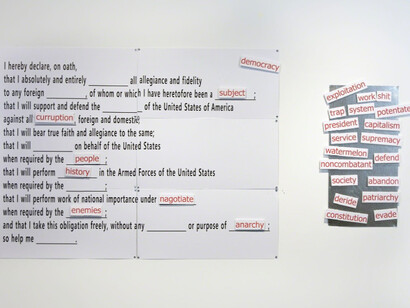 democracy
I hereby declare, on oath,
that I absolutely and entirely ________ all allegiance and fidelity
to any foreign ________, of whom or which I have heretofore been a subject ;
that I will support and defend the ________ of the United States of America
against all curruption foreign and domestic
that I will bear true faith and allegiance to the same;
that I will ________ on behalf of the United States
when required by the people ;
that I will perform history in the Armed Forces of the United States
when required by the ________;
that I will perform work of national importance under nagotiate
when required by the enemies ;
and that I take this obligation freely, without any ________ or purpose of anarchy ;
so help me ________.
exploitation
work shit
trap system potentate
president capitalism
service supremacy
watermelon
noncombatant defend
society abandon
deride patriarchy
constitution evade